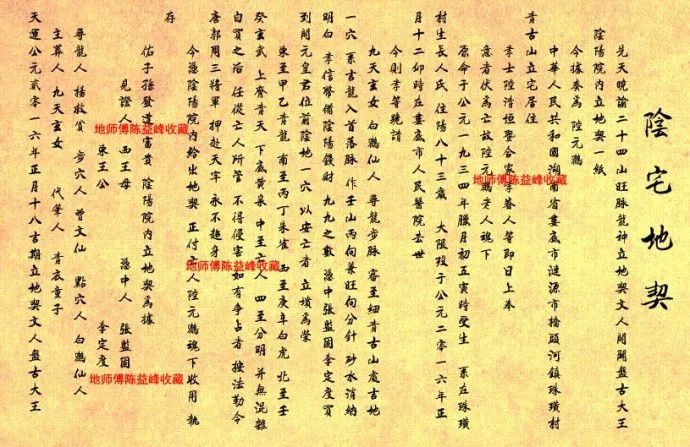 陰宅地契
兑天曉諭二十四山旺脉龍神立地契文人開闢盤古大王
陰陽院內立地契一紙
今據奏為 陸元鵝
中華人民共和國湖南省婁底市漣源市橋頭河鎮珠璜村
青古山立宅居住
孝士陸清恒暨合家孝眷人等即日上奉
意者伏為亡故陸元鵝老人魂下
原命于公元一九三四年臘月初五寅時受生 系在珠璜
村生長人氏 住陽八十三歲 大限歿于公元二零一六年正
月十二卯時在婁底市人民醫院去世
今則孝等跪請
九天玄女 白鶴仙人 尋龍步脉 審至細青古山處吉地
一穴 系玄龍入首落脉 作壬山丙向兼旺向分針 砂水消納
明白 孝信修備陰陽錢財 九九之數 憑中張監固李定度買
到開元皇君位前陰地一穴 以安亡者 立墳為塋
東至甲乙青龍 南至丙丁朱雀 西至庚辛白虎 北至壬
癸玄武 上齊青天 下底黃泉 中至亡人 四至分明 并無混雜
自買之后 任從亡人所管 不得侵害 如有爭占者 按法勒令
唐郭周三將軍 押赴天牢 永不超身
今憑陰陽院內給出地契 正付亡人陸元鵝魂下收用 執
存
佑子孫發達富貴 陰陽院內立地契為據
見證人 西王母 東王公
憑中人 張監固 李定度
尋龍人 楊救貧 步穴人 曾文仙 點穴人 白鶴仙人
主葬人 九天玄女 代筆人 青衣童子
天運公元貳零一六年正月十八吉期立地契文人盤古大王
地师傅陈益峰收藏
地师傅陈益峰收藏
地师傅陈益峰收藏
地师傅陈益峰收藏